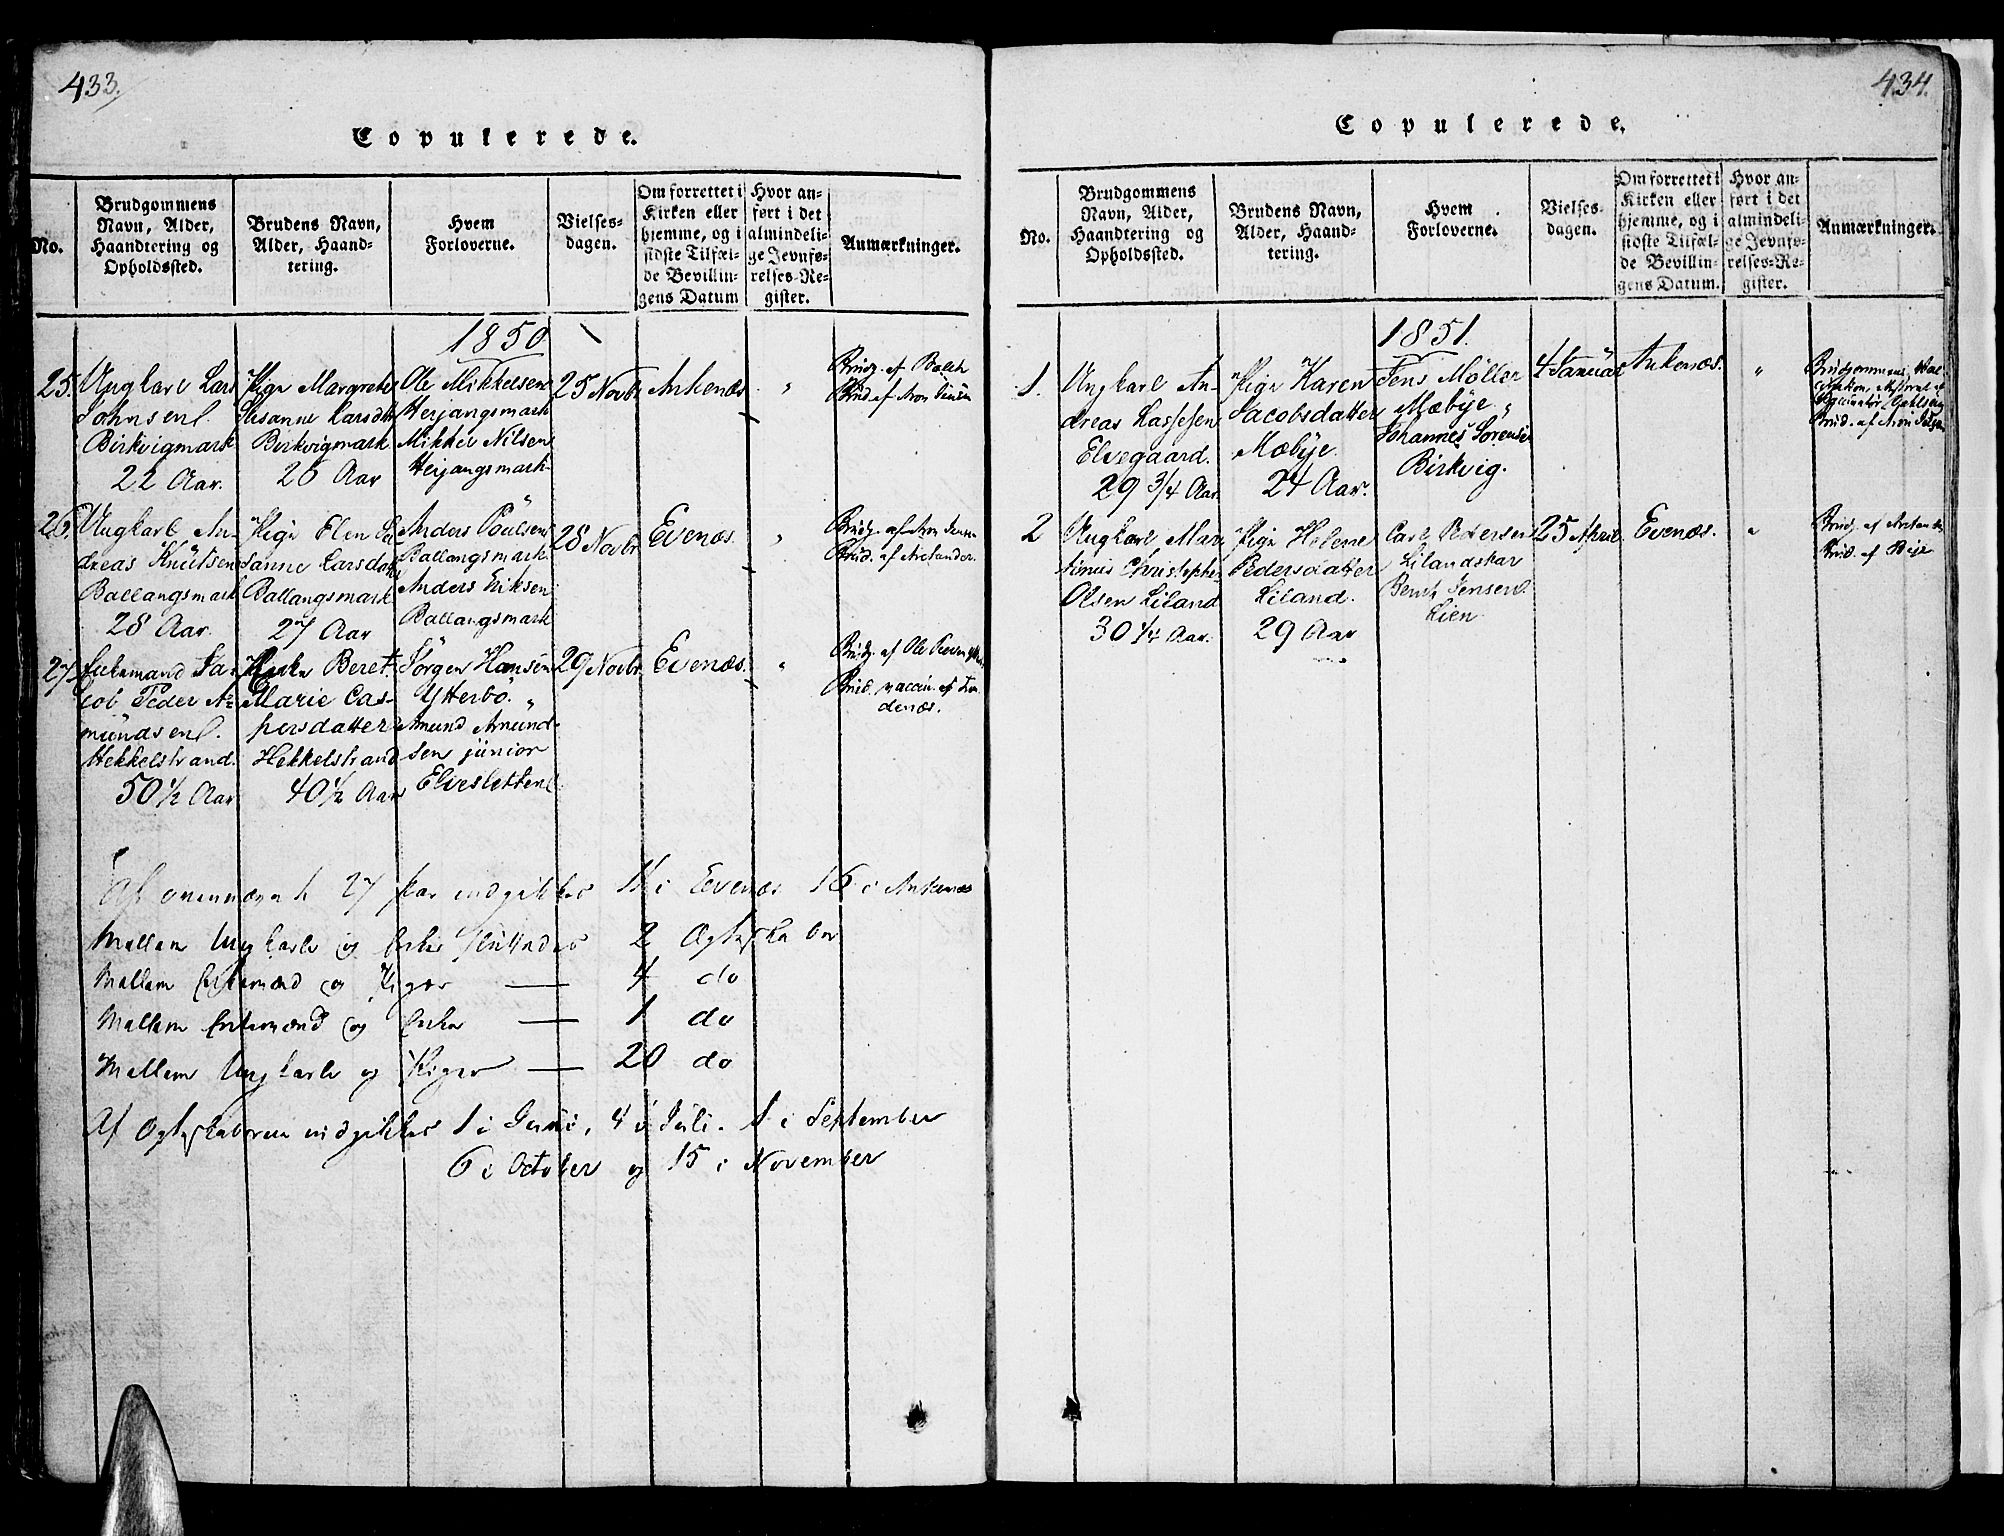 433.
Copulerede.
No.
Brudgommens
Navn, Alder,
Haandtering og
Opholdssted.
Brudens Navn,
Alder, Haand-
tering.
Hvem
Forloverne.
Vielses-
dagen.
Om forrettet i
Kirken eller
hjemme, og i
sidste Tilfæl-
de Bevillin-
gens Datum
Hvor an-
ført i det
almindeli-
ge Jevnfø-
relses-Re-
gister.
Anmærkninger.
1850
25. Ungkarl Lars
Johnsen
Birkvigmark
22 Aar.
Pige Margrethe
Susanne Larsdtr
Birkvigmark
26 Aar
Ole Mikkelsen
Herjangsmark
Mikkel Nilsen
Herjangsmark
25 Novbr
Ankenæs
"
Brudg. af Balch
Brud. af Aron
26. Ungkarl An-
dreas Knutsen
Ballangsmark
28 Aar.
Pige Elen Su
sanne Larsdatter
Ballangsmark
27 Aar
Anders Poulsen
Ballangsmark
Anders Eriksen
Ballangsmark
28 Novbr
Evenæs.
"
Brudg. af Aron
Brud. af
27. Enkemand Ja-
cob Peder A-
mundsen
Hekkelstrand.
50½ Aar
Enke Beret
Marie Cas-
persdatter
Hekkelstrand
40½ Aar
Jørgen Hansen
Ytterbø "
Amund Amund-
sen junior
Elvesletten
29 Novbr
Evenæs.
"
Brudg. af Ole
Brud. vaccin. af
denæs.
Af ovennævnte 27 Par indgikkes 11 i Evenæs 16 i Ankenæs
Mellem Ungkarle og Enker stiftedes 2 Ægteskaber
Mellem Enkemænd og Piger — 4 do
Mellem Enkemænd og Enker — 1 do
Mellem Ungkarle og Piger — 20 do
Af Ægteskaberne indgikkes 1 i Juni, 4 i Juli. 1 i September
6 i October og 15 i November
434.
Copulerede.
No.
Brudgommens
Navn, Alder,
Haandtering og
Opholdssted.
Brudens Navn,
Alder, Haand-
tering.
Hvem
Forloverne.
Vielses-
dagen.
Om forrettet i
Kirken eller
hjemme, og i
sidste Tilfæl-
de Bevillin-
gens Datum.
Hvor an-
ført i det
almindeli-
ge Jevnfø-
relses-Re-
gister.
Anmærkninger.
1851.
1. Ungkarl An-
dreas Lassesen
Elvegaard.
29 3/4 Aar
Pige Karen
Jacobsdatter
Mæbye.
24 Aar.
Jens Møller
Mæbye "
Johannes Sørensen
Birkvig.
4 Januar
Ankenæs.
"
Brudgommens
Brud. af Aron
2 Ungkarl Mar
tinus Christopher
Olsen Liland
30 1/4 Aar.
Pige Helene
Pedersdatter
Liland.
29 Aar
Carl Pedersen
Lilandskar
Bernt Jensen
Lien
25 April
Evenæs.
"
Brudg. af
Brud. af Beje